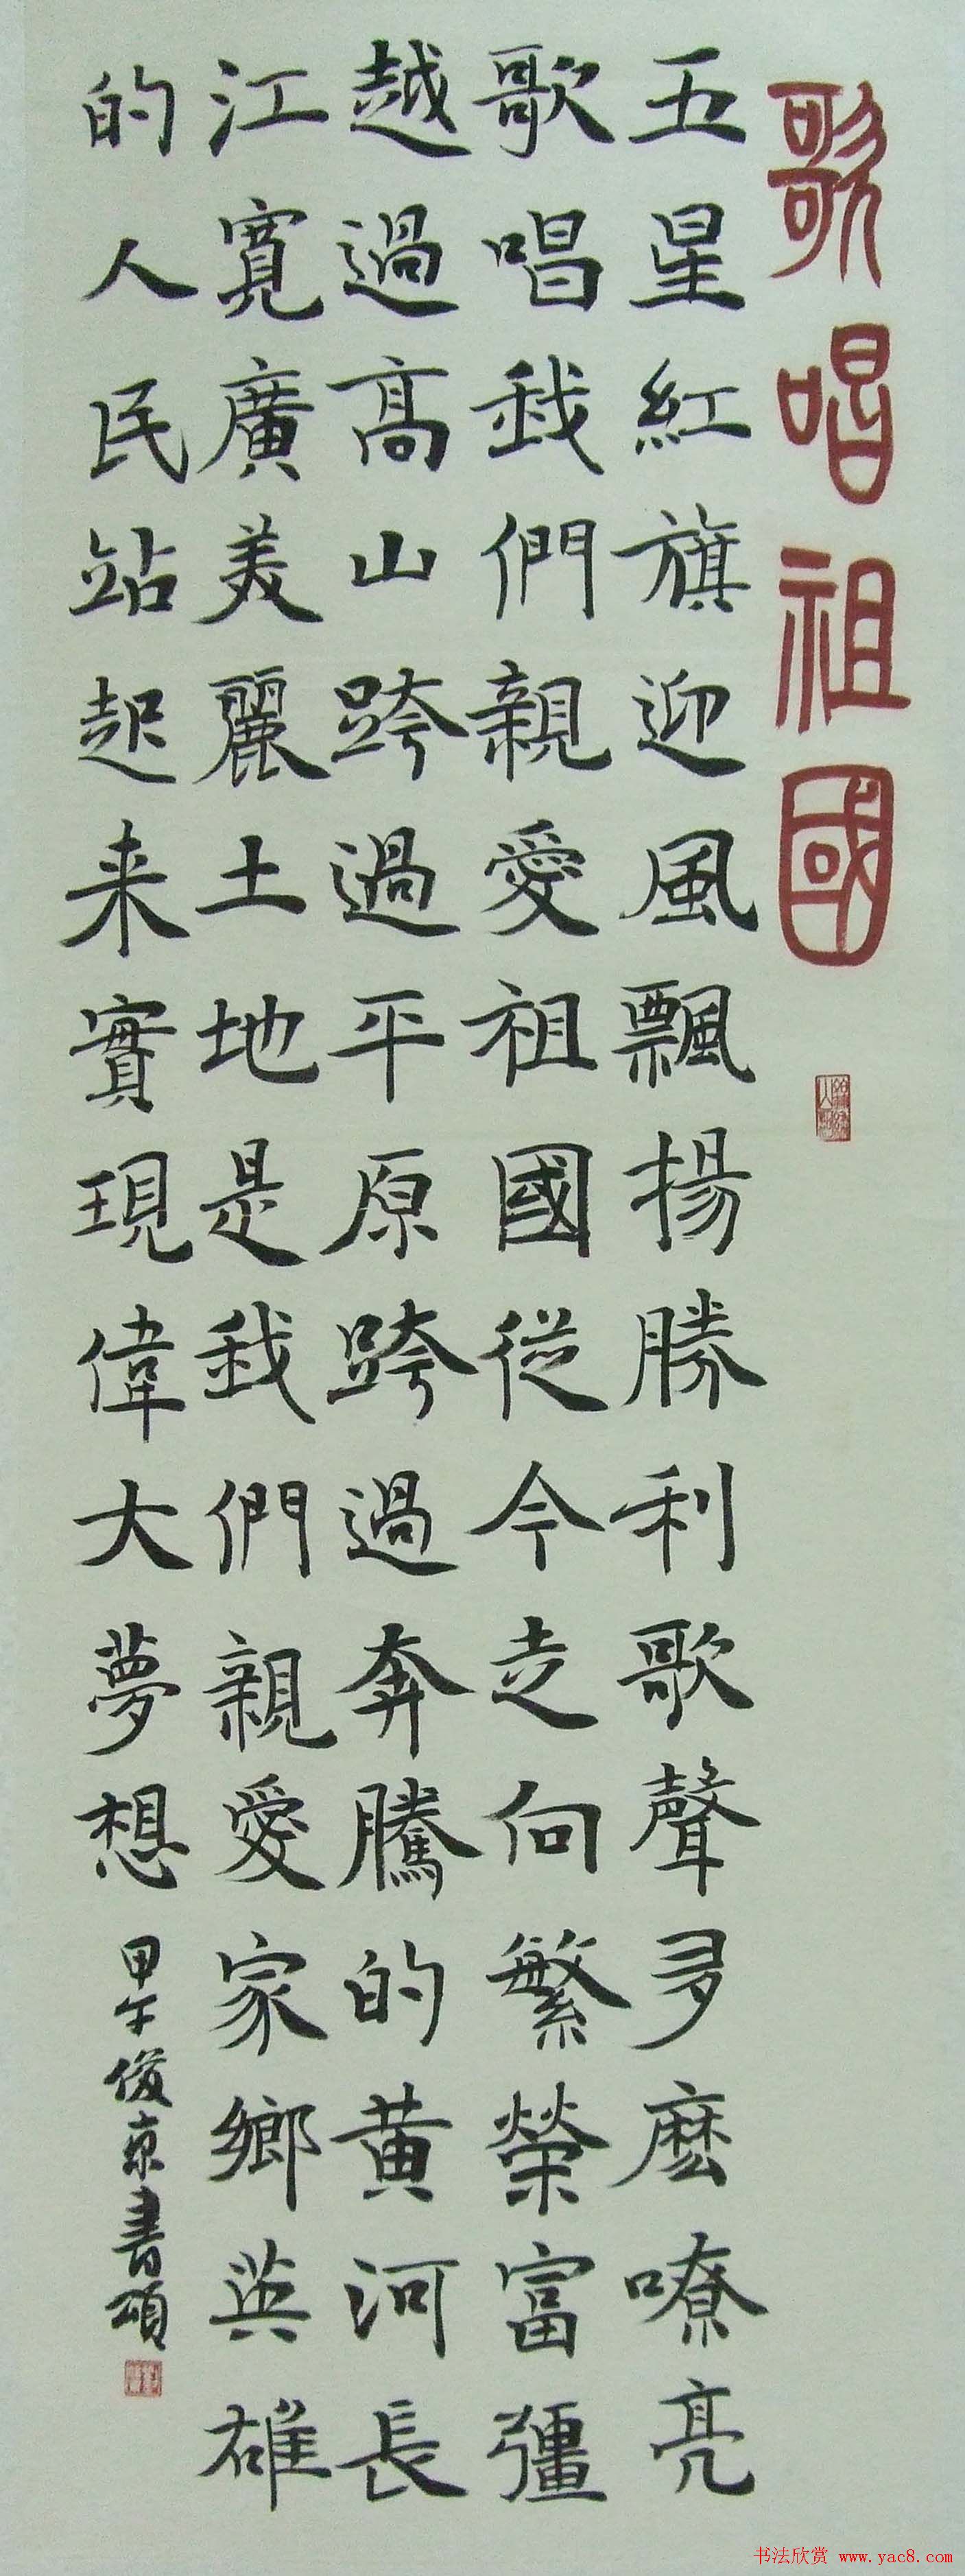 歌唱祖國
五星紅旗迎風飄揚勝利歌聲多麽嘹亮
歌唱我們親愛祖國從今走向繁榮富彊
越過高山跨過平原跨過奔騰的黄河長
江寬廣美麗土地是我們親愛家鄉英雄
的人民站起来實現偉大夢想
甲午俊京書頌
书法欣赏 www.yac8.com